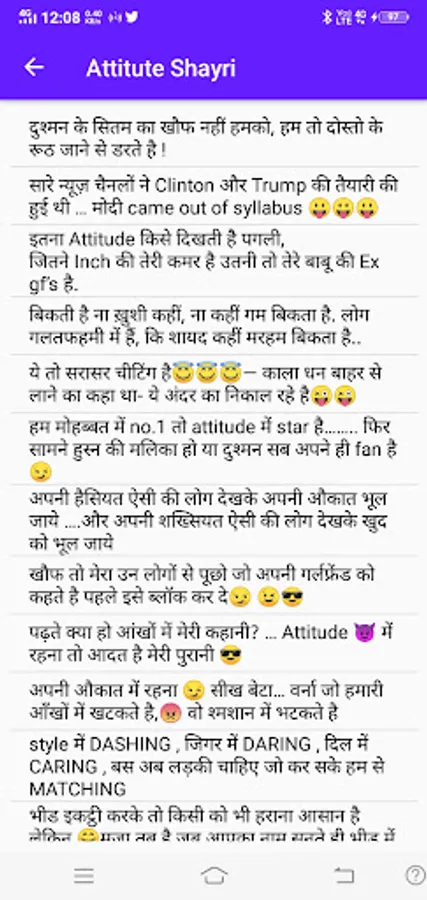 4G 12:08 0.40 KB/s
Vo) LTE 4G 97
Attitute Shayri
दुश्मन के सितम का खौफ नहीं हमको, हम तो दोस्तो के
रूठ जाने से डरते है !
सारे न्यूज़ चैनलों ने Clinton और Trump की तैयारी की
हुई थी ... मोदी came out of syllabus 😛😛😛
इतना Attitude किसे दिखती है पगली,
जितने Inch की तेरी कमर है उतनी तो तेरे बाबू की Ex
gf's है.
बिकती है ना ख़ुशी कहीं, ना कहीं गम बिकता है. लोग
गलतफहमी में हैं, कि शायद कहीं मरहम बिकता है..
ये तो सरासर चीटिंग है😇😇😇– काला धन बाहर से
लाने का कहा था- ये अंदर का निकाल रहे है😜😜
हम मोहब्बत में no.1 तो attitude में star है........ फिर
सामने हुस्न की मलिका हो या दुश्मन सब अपने ही fan है
😏
अपनी हैसियत ऐसी की लोग देखके अपनी औकात भूल
जाये ....और अपनी शख्सियत ऐसी की लोग देखके खुद
को भूल जाये
खौफ तो मेरा उन लोगों से पूछो जो अपनी गर्लफ्रेंड को
कहते है पहले इसे ब्लॉक कर दे😏 😉😎
पढ़ते क्या हो आंखों में मेरी कहानी? ... Attitude 😈 में
रहना तो आदत है मेरी पुरानी 😎
अपनी औकात में रहना 😏 सीख बेटा... वर्ना जो हमारी
आँखों में खटकते है,😡 वो श्मशान में भटकते है
style में DASHING , जिगर में DARING , दिल में
CARING , बस अब लड़की चाहिए जो कर सके हम से
MATCHING
भीड इकट्ठी करके तो किसी को भी हराना आसान है
लेकिन 😊मजा तब है जब आपका नाम सुनते ही भीड़ में